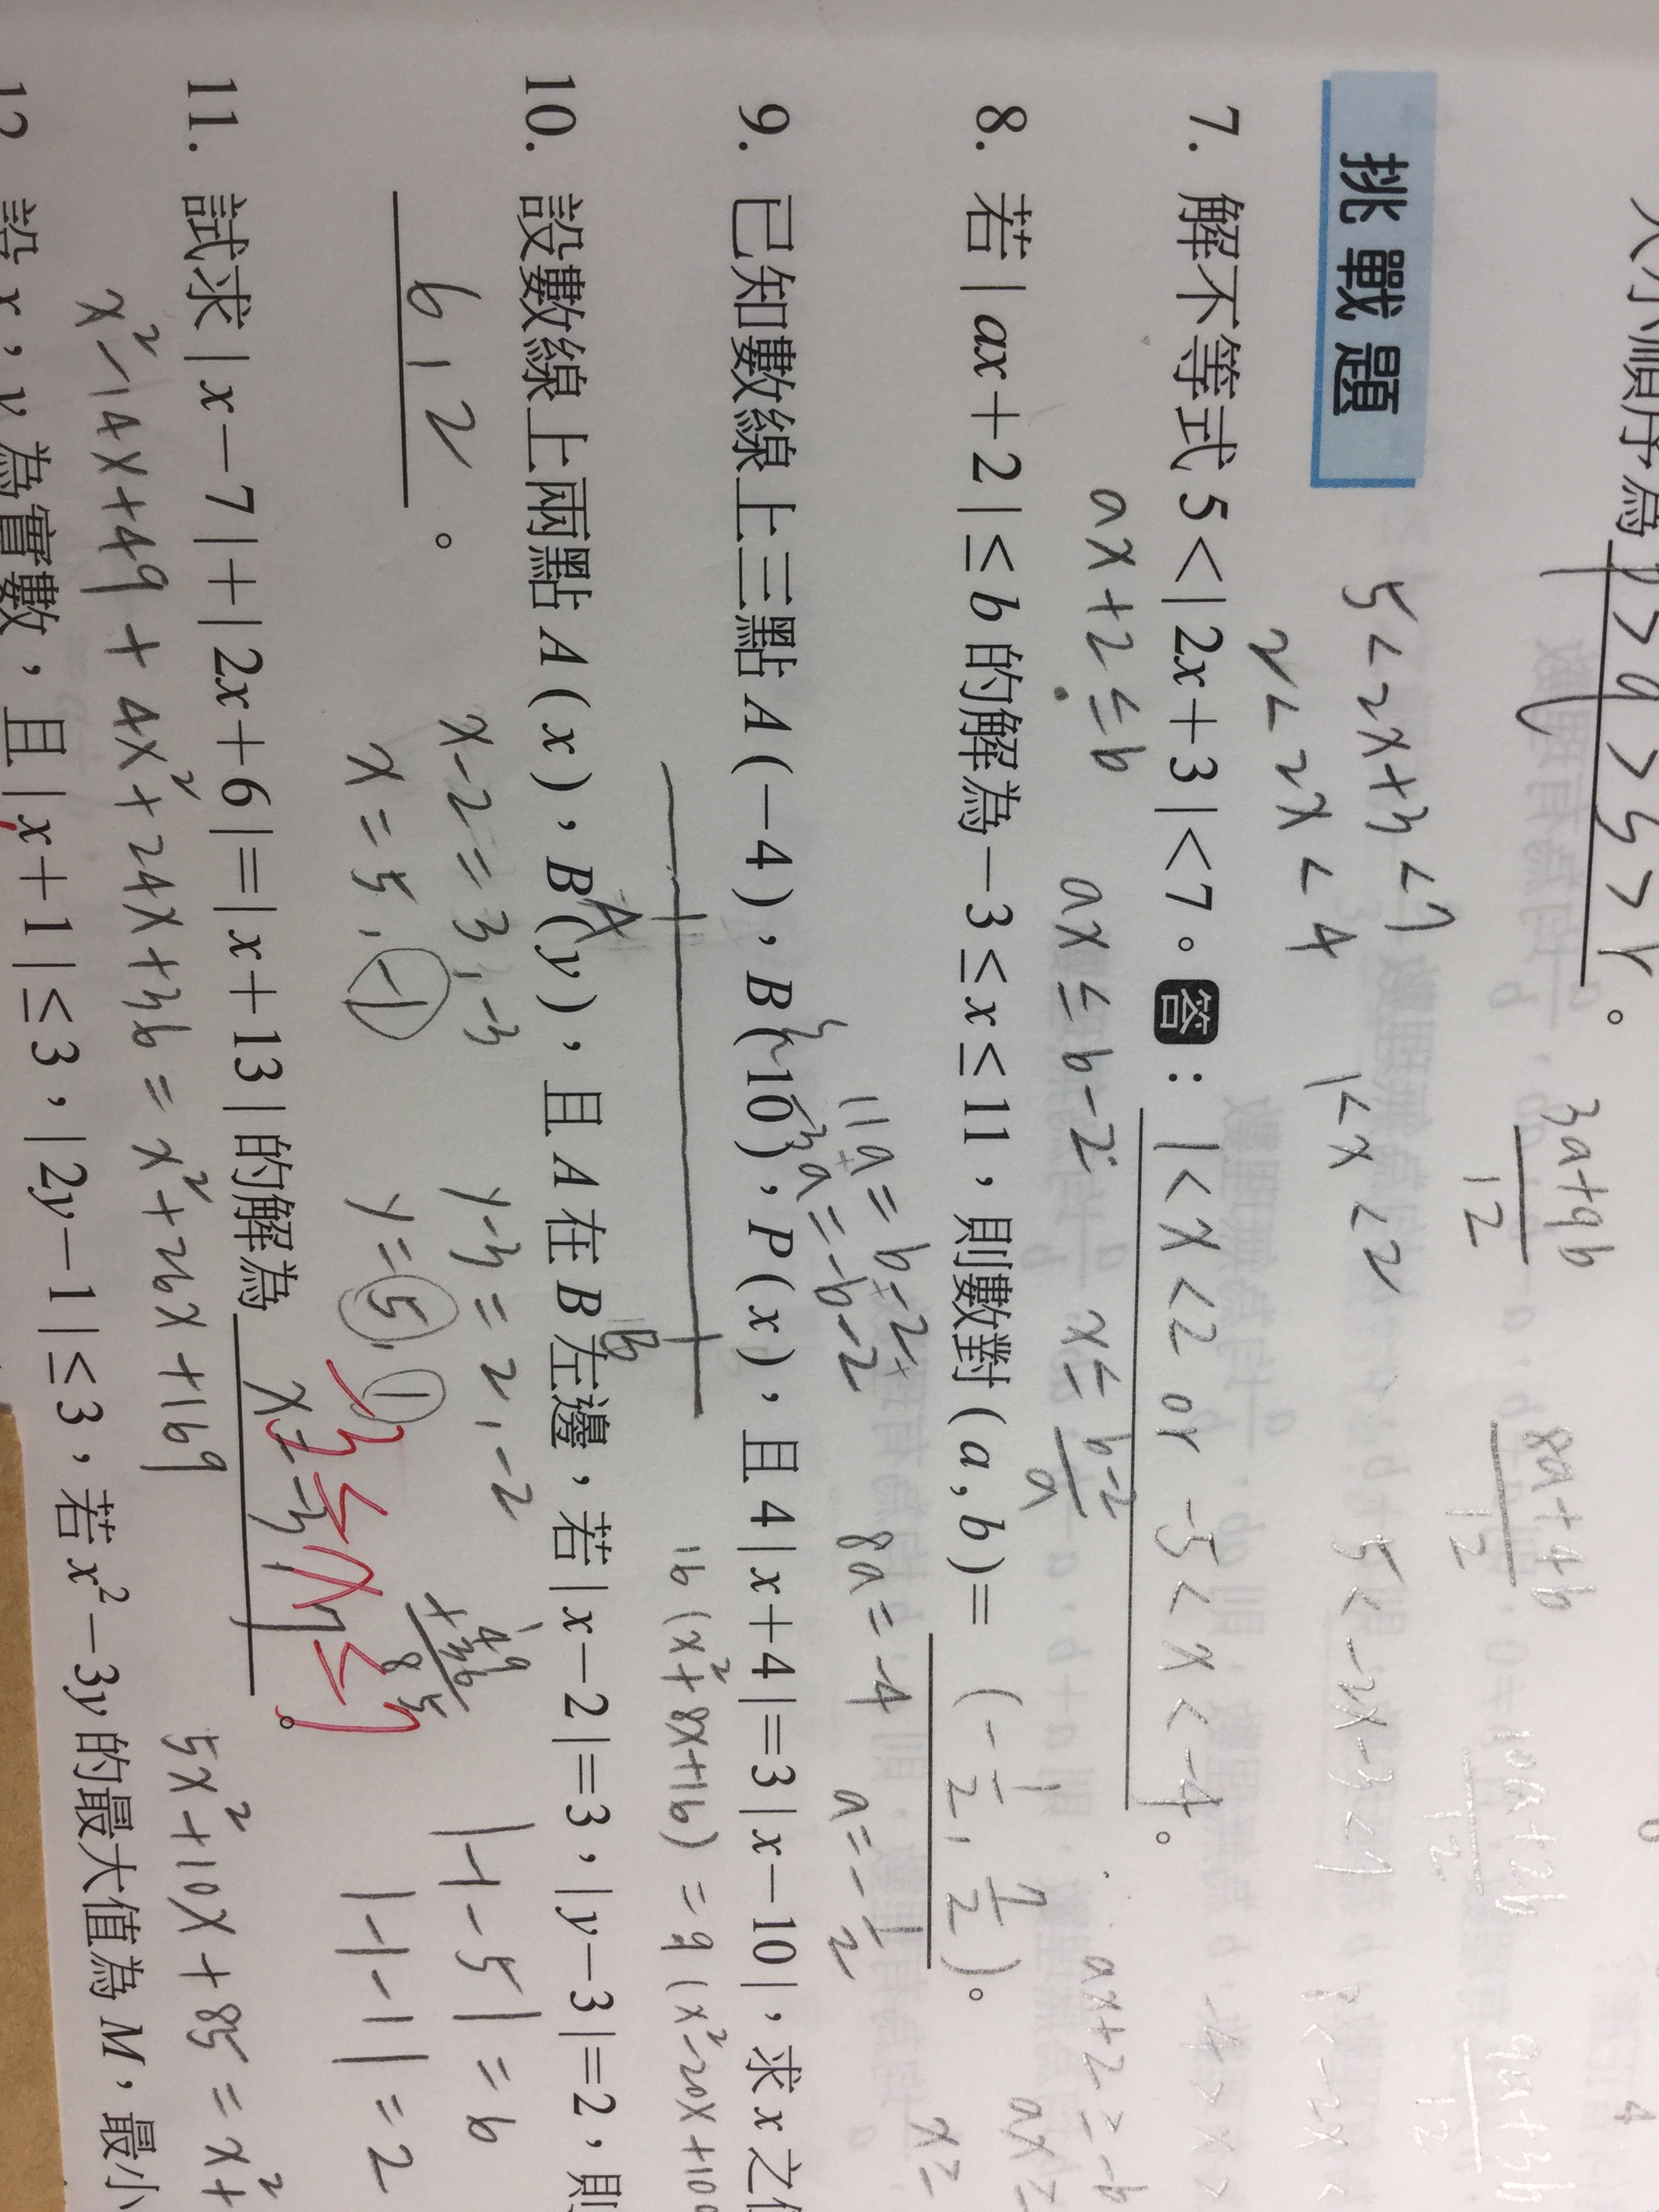 大小順序為 b > a > 5 > r 。
3a+9b/12
8a+4b/12
10a+2b/12
9a+3b/12
挑戰題
5 < 2x+3 < 7
2 < 2x < 4
1 < x < 2
5 < -2x-3 < 7
7. 解不等式 5 < | 2x + 3 | < 7。答: 1 < x < 2 or -5 < x < -4 。
ax + 2 ≤ b
ax ≤ b-2
x ≤ b-2/a
ax+2 ≥ -b
8. 若 | ax + 2 | ≤ b 的解為 -3 ≤ x ≤ 11,則數對 ( a , b ) = (-1/2, 7/2) 。
11a = b-2
-3a = -b-2
8a = -4
a = -1/2
9. 已知數線上三點 A ( -4 ),B ( 10 ),P ( x ),且 4 | x + 4 | = 3 | x - 10 |,求 x 之
16 (x²+8x+16) = 9 (x²-20x+100
A
B
10. 設數線上兩點 A ( x ),B ( y ),且 A 在 B 左邊,若 | x - 2 | = 3,| y - 3 | = 2,則
6, 2 。
x-2 = 3, -3
x = 5, -1
y-3 = 2, -2
y = 5, 1
|-1-5| = 6
|-1-1| = 2
49
+36
85
11. 試求 | x - 7 | + | 2x + 6 | = | x + 13 | 的解為 x = -3, 7 。
-3 ≤ x ≤ 7
x²-14x+49 + 4x²+24x+36 = x²+26x+169
5x²+10x+85 = x²+
12. 設 x,y 為實數,且 | x + 1 | ≤ 3,| 2y - 1 | ≤ 3,若 x² - 3y 的最大值為 M,最小